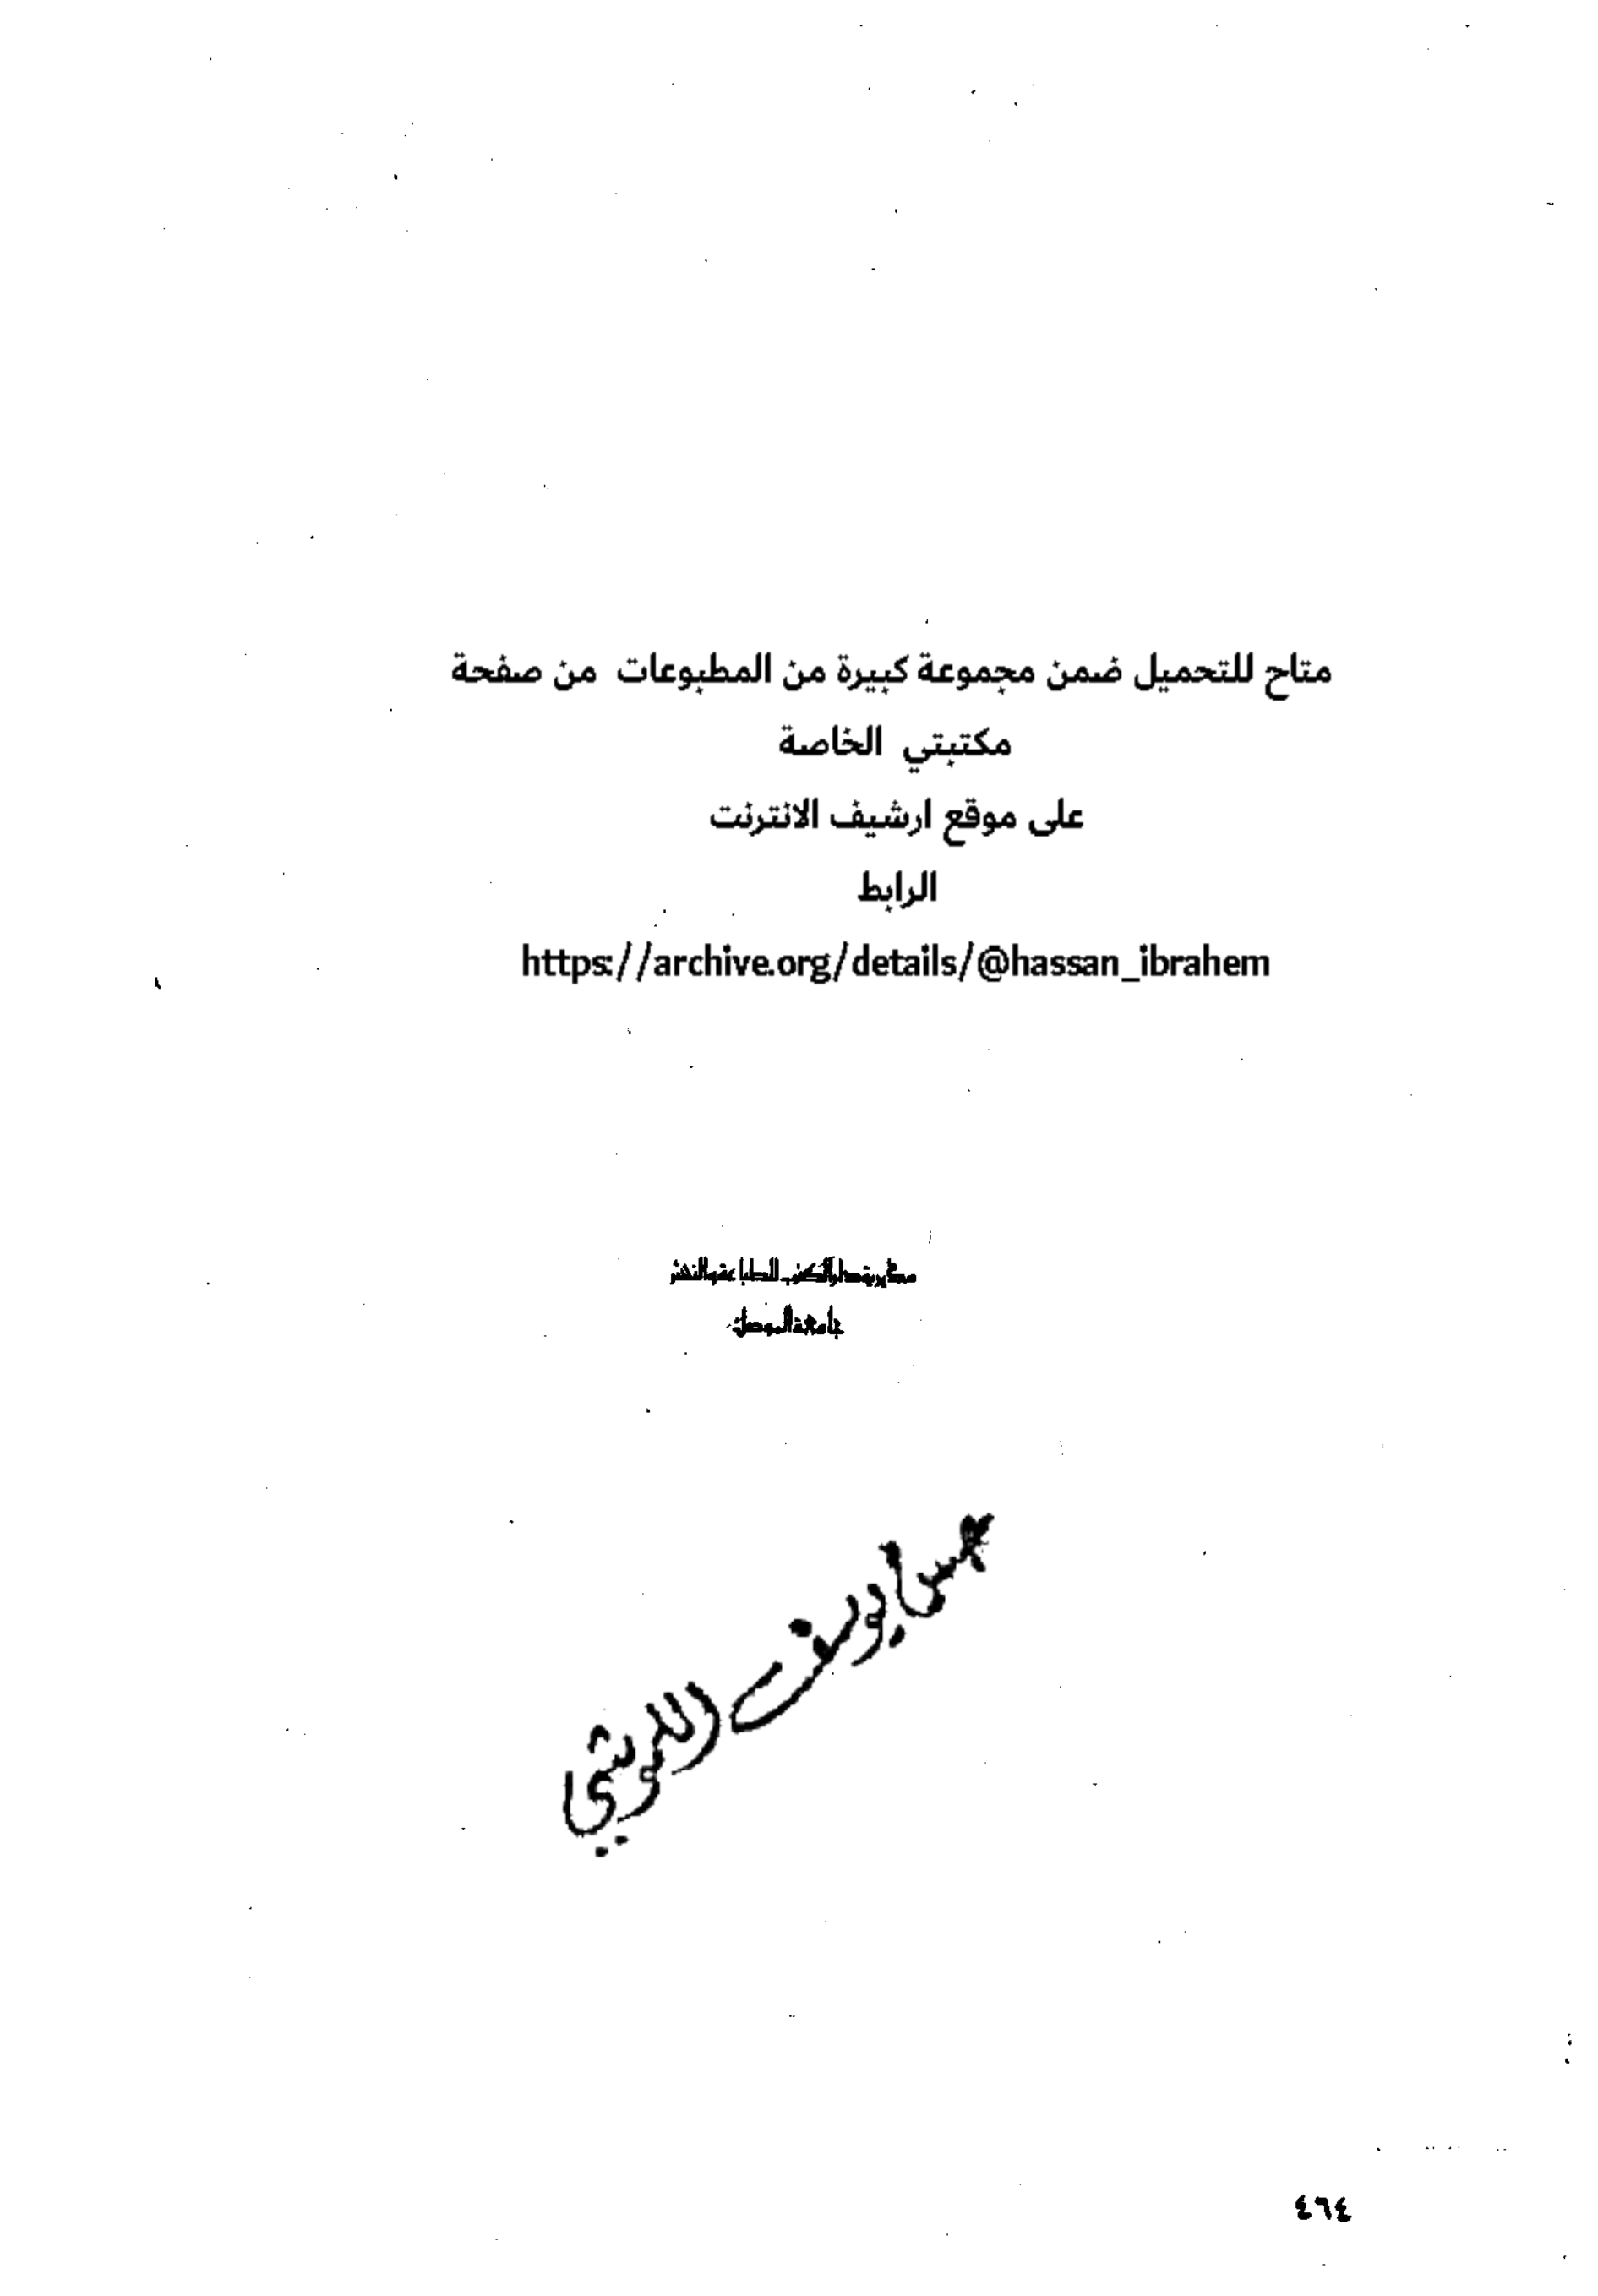 متاح للتحميل ضمن مجموعة كبيرة من المطبوعات من صفحة
مكتبتي الخاصة
على موقع ارشيف الانترنت
الرابط
https://archive.org/details/@hassan_ibrahem
مديرية دار الكتب للطباعة والنشر
جامعة الموصل
يوسف
٤٦٤